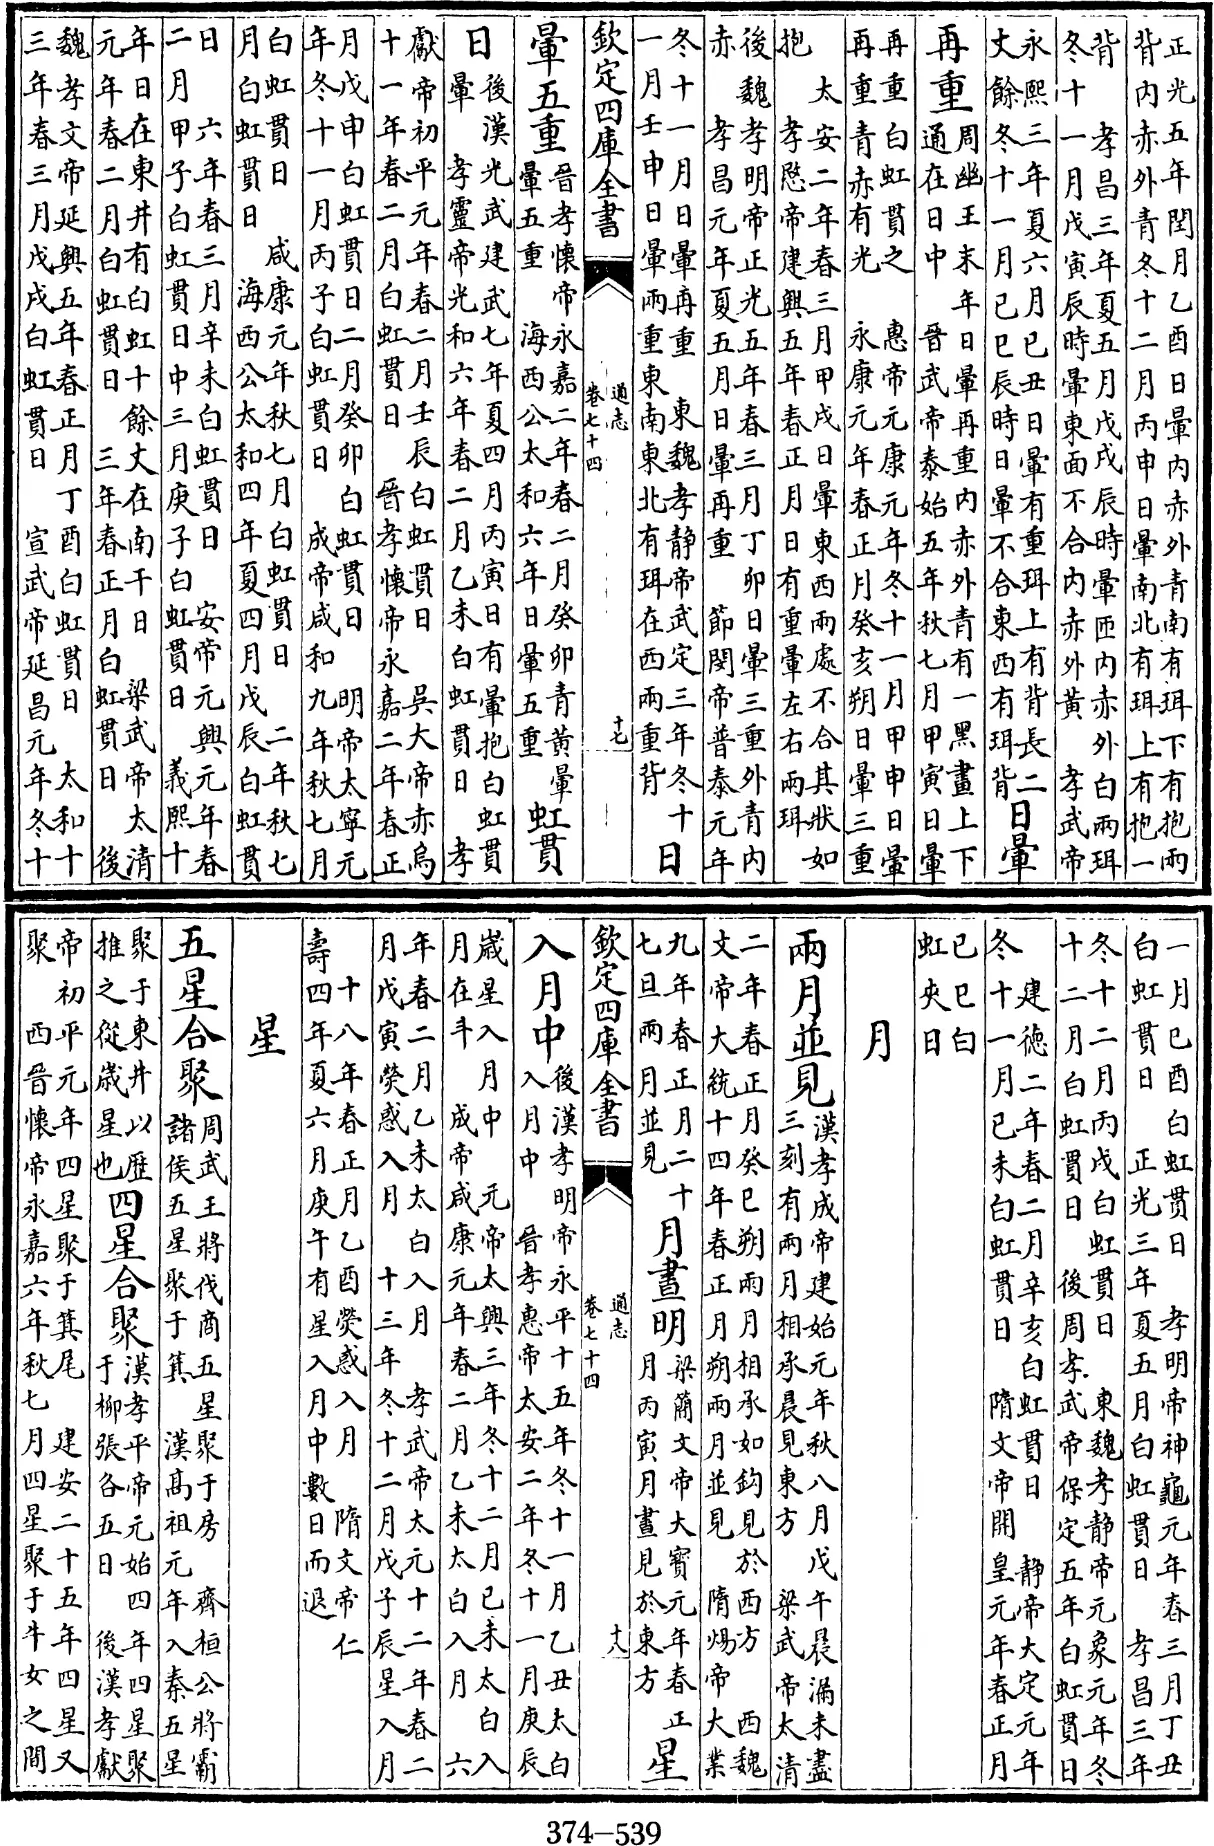 正光五年閏月乙酉日暈内赤外青南有珥下有抱兩
背内赤外青冬十二月丙申日暈南北有珥上有抱一
背　孝昌三年夏五月戊戌辰時暈匝内赤外白兩珥
冬十一月戊寅辰時暈東面不合内赤外黄　孝武帝
永熙三年夏六月已丑日暈有重珥上有背長二
丈餘冬十一月已巳辰時日暈不合東西有珥背
日暈
再重
周幽王末年日暈再重内赤外青有一黑畫上下
通在日中　晉武帝泰始五年秋七月甲寅日暈
再重白虹貫之　惠帝元康元年冬十一月甲申日暈
再重青赤有光　永康元年春正月癸亥朔日暈三重
太安二年春三月甲戌日暈東西兩處不合其狀如
抱　孝愍帝建興五年春正月日有重暈左右兩珥
後魏孝明帝正光五年春三月丁卯日暈三重外青内
赤　孝昌元年夏五月日暈再重　節閔帝普泰元年
冬十一月日暈再重　東魏孝靜帝武定三年冬十
一月壬申日暈兩重東南東北有珥在西兩重背
日
欽定四庫全書
通志
卷七十四
十七
暈五重
晉孝懷帝永嘉二年春二月癸卯青黄暈
暈五重　海西公太和六年日暈五重
虹貫
日
後漢光武建武七年夏四月丙寅日有暈抱白虹貫
暈　孝靈帝光和六年春二月乙未白虹貫日　孝
獻帝初平元年春二月壬辰白虹貫日　吳大帝赤烏
十一年春二月白虹貫日　晉孝懷帝永嘉二年春正
月戊申白虹貫日二月癸卯白虹貫日　明帝太寧元
年冬十一月丙子白虹貫日　成帝咸和九年秋七月
白虹貫日　咸康元年秋七月白虹貫日　二年秋七
月白虹貫日　海西公太和四年夏四月戊辰白虹貫
日　六年春三月辛未白虹貫日　安帝元興元年春
二月甲子白虹貫日中三月庚子白虹貫日　義熙十
年日在東井有白虹十餘丈在南干日　梁武帝太清
元年春二月白虹貫日　三年春正月白虹貫日　後
魏孝文帝延興五年春正月丁酉白虹貫日　太和十
三年春三月戊戌白虹貫日　宣武帝延昌元年冬十
一月已酉白虹貫日　孝明帝神龜元年春三月丁丑
白虹貫日　正光三年夏五月白虹貫日　孝昌三年
冬十二月丙戌白虹貫日　東魏孝静帝元象元年冬
十二月白虹貫日　後周孝武帝保定五年白虹貫日
建德二年春二月辛亥白虹貫日　静帝大定元年
冬十一月已未白虹貫日　隋文帝開皇元年春正月
已巳白
虹夾日
月
兩月並見
漢孝成帝建始元年秋八月戊午晨漏未盡
三刻有兩月相承晨見東方　梁武帝太清
二年春正月癸巳朔兩月相承如鈎見於西方　西魏
文帝大統十四年春正月朔兩月並見　隋煬帝大業
九年春正月二十
七旦兩月並見
月晝明
梁簡文帝大寳元年春正
月丙寅月晝見於東方
星
欽定四庫全書
通志
卷七十四
十八
入月中
後漢孝明帝永平十五年冬十一月乙丑太白
入月中　晉孝惠帝太安二年冬十一月庚辰
歲星入月中　元帝太興三年冬十二月已未太白入
月在斗　成帝咸康元年春二月乙未太白入月　六
年春二月乙未太白入月　孝武帝太元十二年春二
月戊寅熒惑入月　十三年冬十二月戊子辰星入月
十八年春正月乙酉熒惑入月　隋文帝仁
壽四年夏六月庚午有星入月中數日而退
星
五星合聚
周武王將伐商五星聚于房　齊桓公將霸
諸侯五星聚于箕　漢高祖元年入秦五星
聚于東井以厯
推之從歳星也
四星合聚
漢孝平帝元始四年四星聚
于柳張各五日　後漢孝獻
帝初平元年四星聚于箕尾　建安二十五年四星又
聚　西晉懷帝永嘉六年秋七月四星聚于牛女之間
374-539